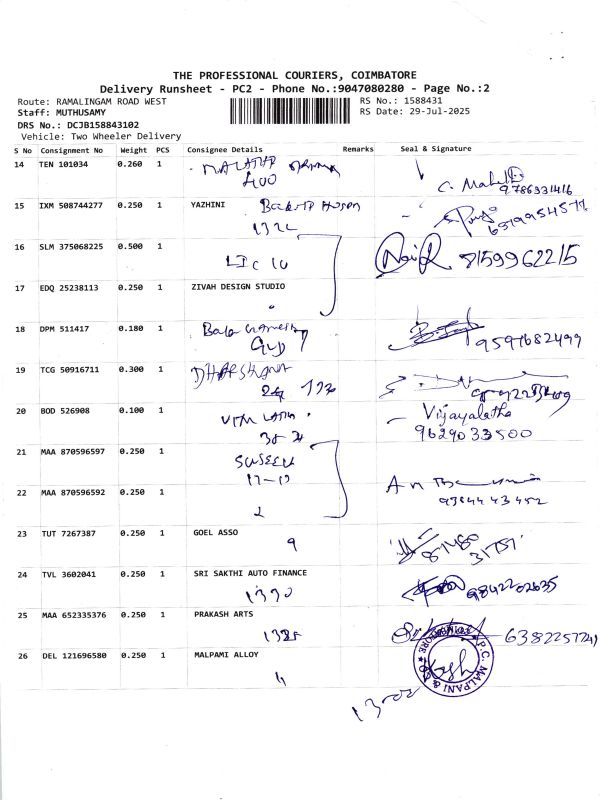 THE PROFESSIONAL COURIERS, COIMBATORE
Delivery Runsheet - PC2 - Phone No.:9047080280 - Page No.:2
Route: RAMALINGAM ROAD WEST RS No.: 1588431
Staff: MUTHUSAMY RS Date: 29-Jul-2025
DRS No.: DCJB158843102
Vehicle: Two Wheeler Delivery
S No Consignment No Weight PCS Consignee Details Remarks Seal & Signature
14 TEN 101034 0.260 1
400 C. Mahesh
9786331416
15 IXM 508744277 0.250 1 YAZHINI
6379954577
16 SLM 375068225 0.500 1 8159962215
LIC 10
17 EDQ 25238113 0.250 1 ZIVAH DESIGN STUDIO
18 DPM 511417 0.180 1 Bala Ganesh
9597682499
19 TCG 50916711 0.300 1
20 BOD 526908 0.100 1 Vijayalatha
9629033500
21 MAA 870596597 0.250 1
22 MAA 870596592 0.250 1
9384443452
2
23 TUT 7267387 0.250 1 GOEL ASSO
9
24 TVL 3602041 0.250 1 SRI SAKTHI AUTO FINANCE
1390 9842202635
25 MAA 652335376 0.250 1 PRAKASH ARTS
6382257241
26 DEL 121696580 0.250 1 MALPAMI ALLOY
P.C. MALPANI &
4
13-00